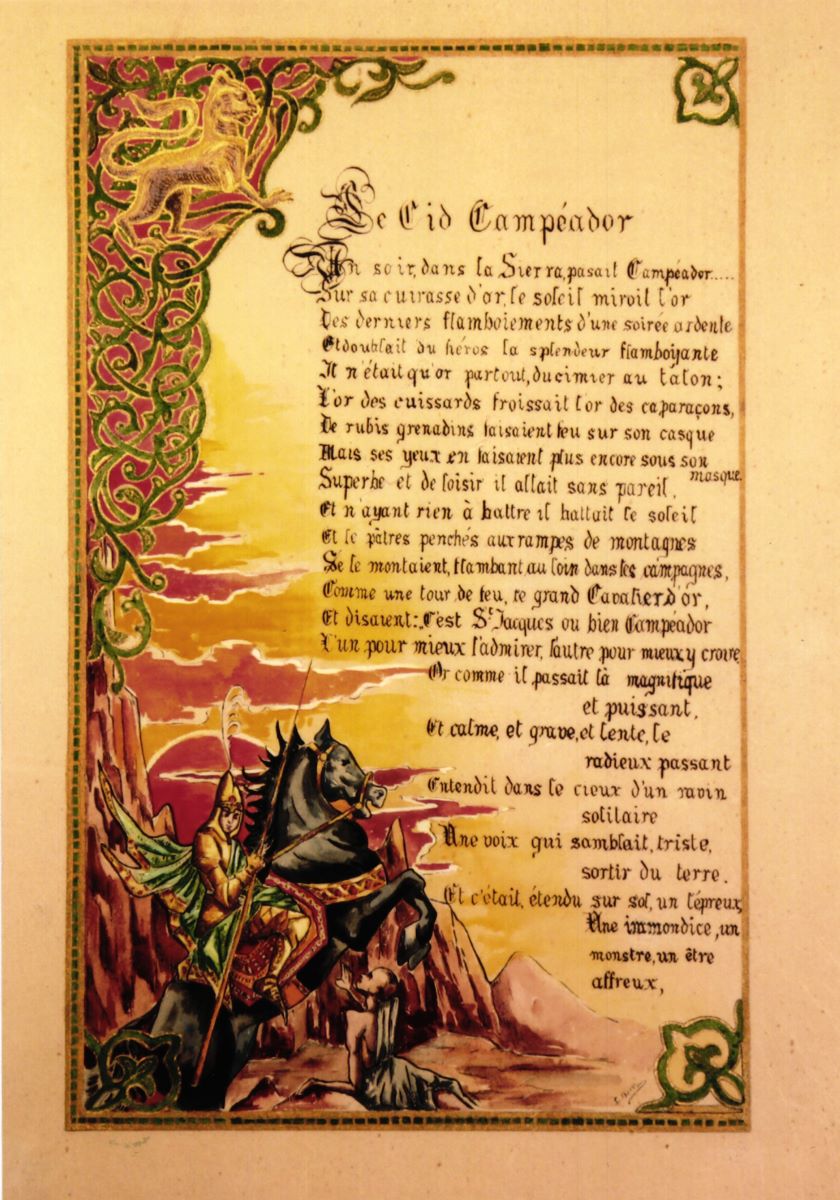 Le Cid Campéador
Un soir, dans la Sierra, pasait Campéador.....
Sur sa cuirasse d'or, le soleil miroit l'or
Des derniers flamboiements d'une soirée ardente
Et doublait du héros la splendeur flamboyante
Il n'était qu'or partout, du cimier au talon;
L'or des cuissards froissait l'or des caparaçons,
De rubis grenadins faisaient feu sur son casque
Mais ses yeux en faisaient plus encore sous son
masque.
Superbe et de loisir il allait sans pareil,
Et n'ayant rien à battre il battait le soleil
Et le pâtres penchés aux rampes de montagnes
Se le montaient, flambant au loin dans les campagnes,
Comme une tour de feu, ce grand Cavalier d'ôr,
Et disaient: C'est St Jacques ou bien Campéador
L'un pour mieux l'admirer, l'autre pour mieux y croire
Or comme il passait là magnifique
et puissant,
Et calme, et grave, et lente, le
radieux passant
Entendit dans le cieux d'un ravin
solitaire
Une voix qui samblait, triste,
sortir du terre.
Et c'était, étendu sur sol, un lépreux,
Une immondice, un
monstre, un être
affreux,